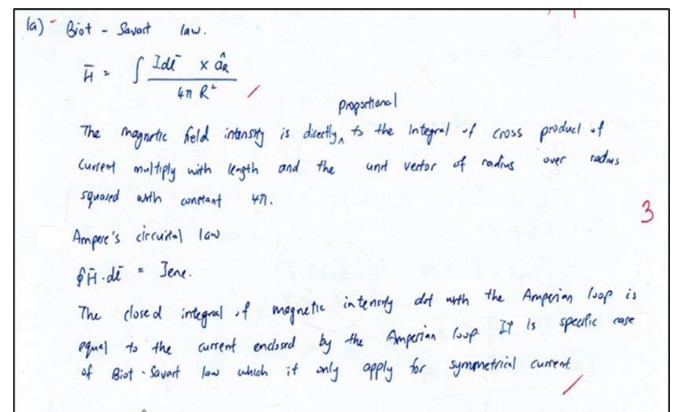 1a) - Biot - Savart law.
H̄ = ∫ Idl̄ × âR / 4π R²
proportional
The magnetic field intensity is directly ^ to the integral of cross product of
current multiply with length and the unit vector of radius over radius
squared with constant 4π.
3
Ampere's circuital law
∮H̄ . dl̄ = Ienc.
The closed integral of magnetic intensity dot with the Amperian loop is
equal to the current enclosed by the Amperian loop. It is specific case
of Biot - Savart law which it only apply for symmetrical current.